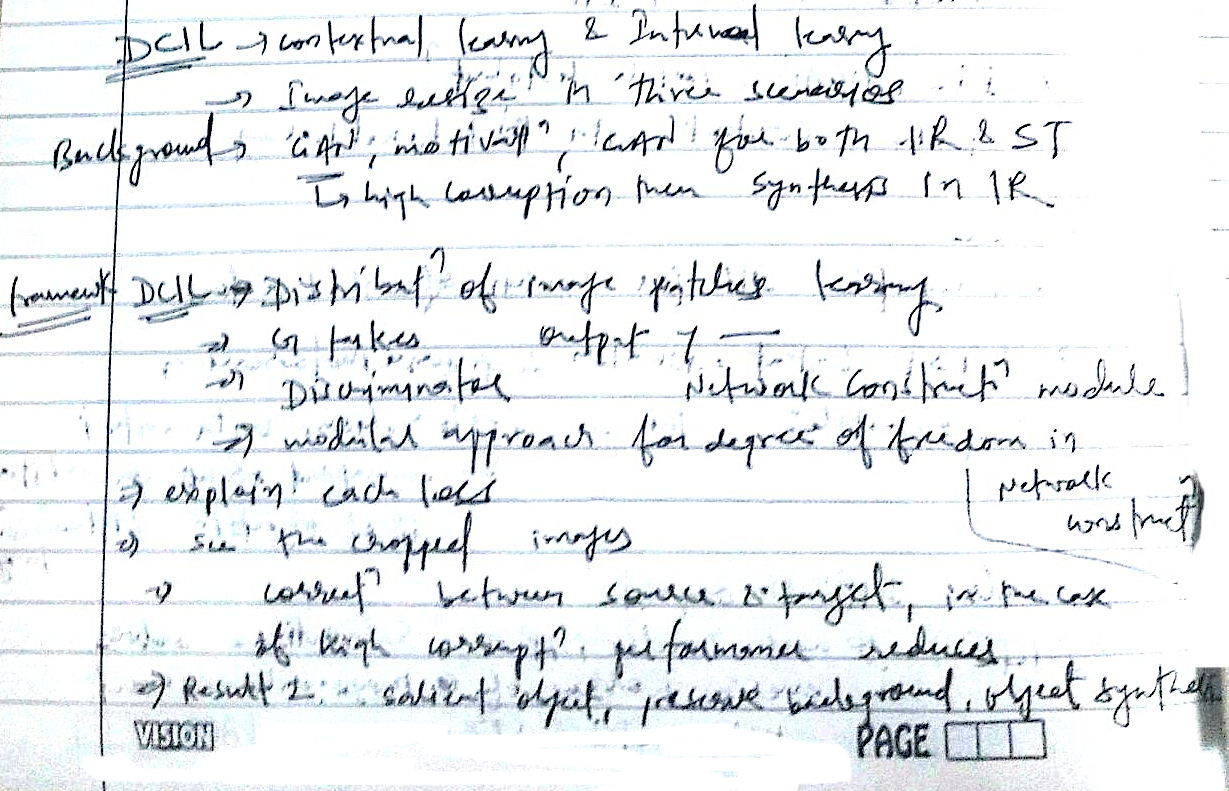 DCIL → contextual learng & Internal learng
→ Image resize in three scenarios
Background → GAN, motivatn, GAN for both IR & ST
↳ high corruption then synthesis in IR
framework DCIL → Distributn of image patches learning
⇒ G takes output y —
⇒ Discriminator Network Constructn module
⇒ modular approach for degree of freedom in
Network constructn
⇒ explain each loss
⇒ see the cropped images
⇒ correctn between source & target, in the case
of high corruptn performance reduces
⇒ Result 1: salient object, preserve background, object synthe
VISION PAGE